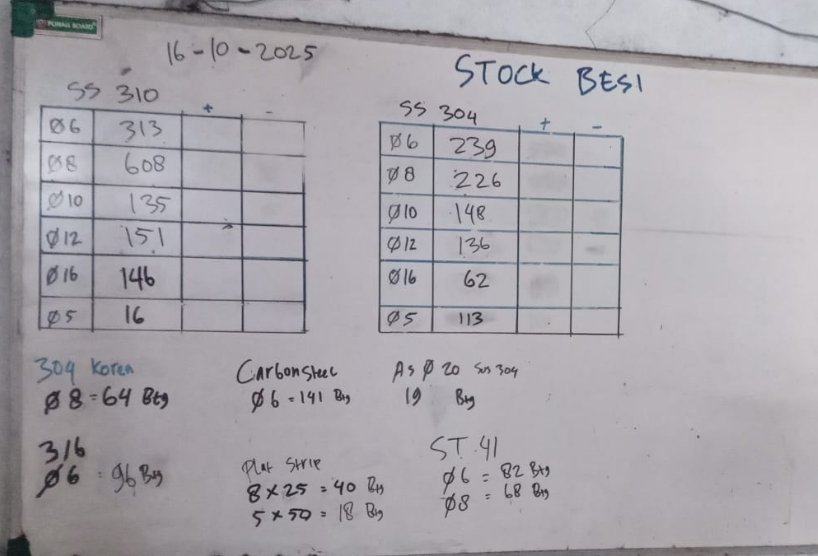 POWAR BOARD
16-10-2025
STOCK BESI
SS 310
+ -
Ø6 313
Ø8 608
Ø10 135
Ø12 151
Ø16 146
Ø5 16
SS 304
+ -
Ø6 239
Ø8 226
Ø10 148
Ø12 136
Ø16 62
Ø5 113
304 Korea
Ø8 = 64 Btg
Carbonsteel
Ø6 = 141 Btg
As Ø 20 Sus 304
19 Btg
316
Ø6 = 96 Btg
Plat Strip
8 x 25 = 40 Btg
5 x 50 = 18 Btg
ST. 41
Ø6 = 82 Btg
Ø8 = 68 Btg